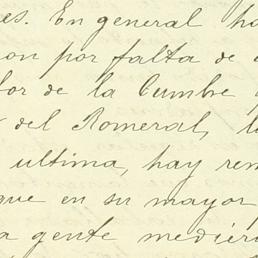 es. En general ha
on por falta de
or de la Cumbre
del Romeral, l
ultima, hay rem
que en su mayor
a gente medier